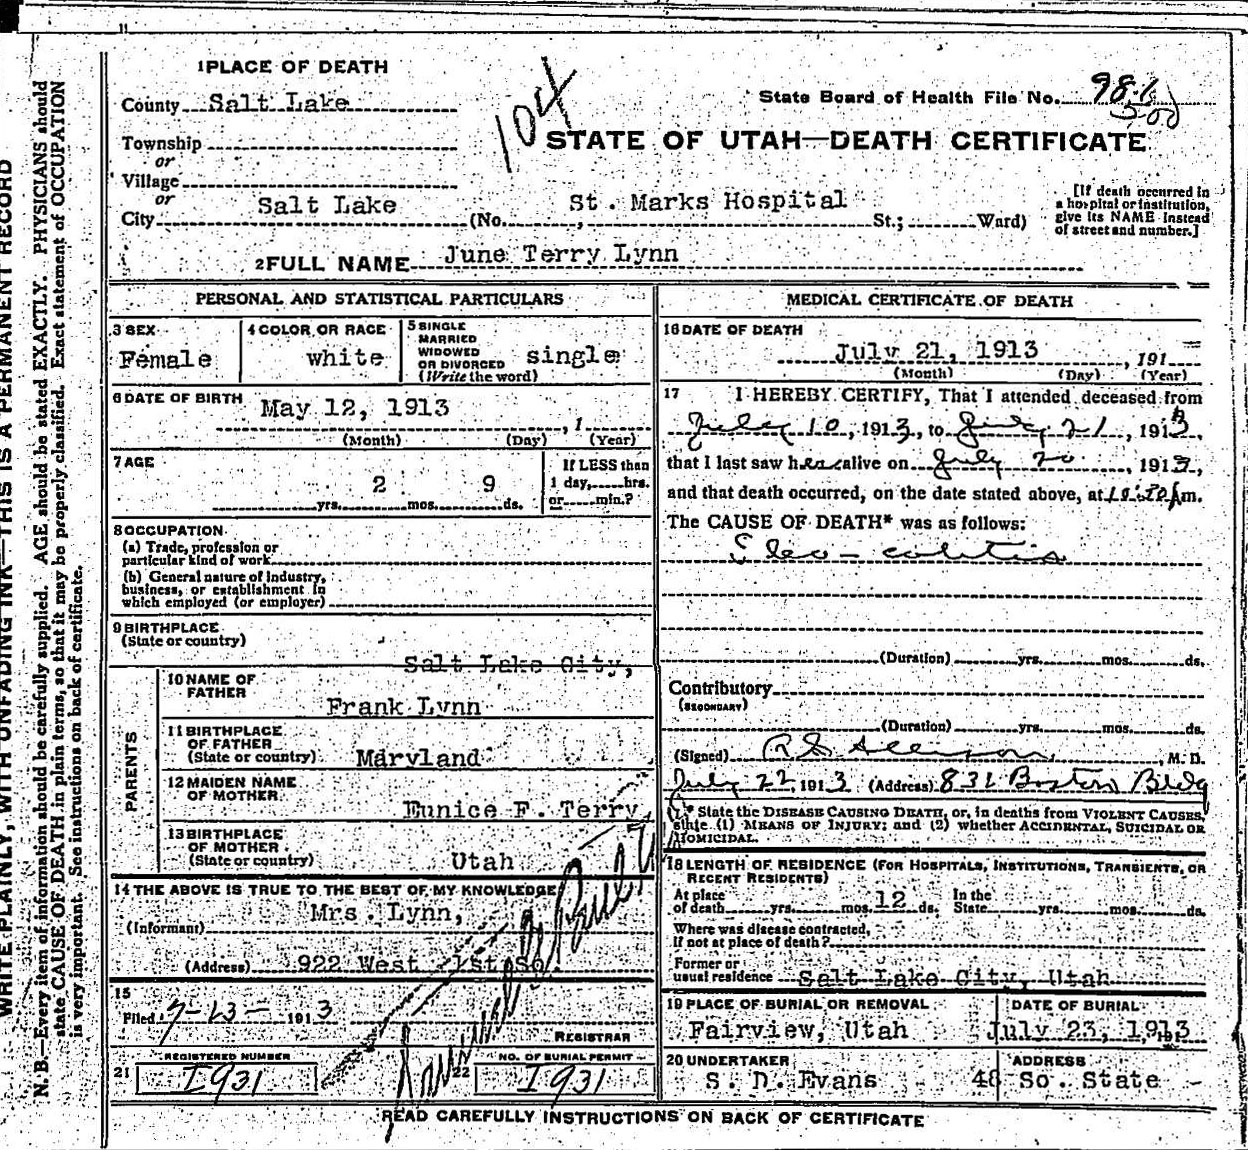 WRITE PLAINLY, WITH UNFADING INK—THIS IS A PERMANENT RECORD
N. B.—Every item of information should be carefully supplied. AGE should be stated EXACTLY. PHYSICIANS should
state CAUSE OF DEATH in plain terms, so that it may be properly classified. Exact statement of OCCUPATION
is very important. See instructions on back of certificate.
1 PLACE OF DEATH
County Salt Lake
Township
or
Village
or
City Salt Lake (No. St. Marks Hospital St.; Ward)
104
State Board of Health File No. 98-1
500
STATE OF UTAH—DEATH CERTIFICATE
[If death occurred in
a hospital or institution,
give its NAME instead
of street and number.]
2 FULL NAME June Terry Lynn
PERSONAL AND STATISTICAL PARTICULARS
3 SEX
Female
4 COLOR OR RACE
white
5 SINGLE
MARRIED
WIDOWED
OR DIVORCED
(Write the word)
single
6 DATE OF BIRTH
May 12, 1913 , 1
(Month) (Day) (Year)
7 AGE
2 9
yrs. mos. ds.
If LESS than
1 day, hrs.
or min.?
8 OCCUPATION
(a) Trade, profession or
particular kind of work
(b) General nature of industry,
business, or establishment in
which employed (or employer)
9 BIRTHPLACE
(State or country)
Salt Lake City,
PARENTS
10 NAME OF
FATHER
Frank Lynn
11 BIRTHPLACE
OF FATHER
(State or country) Maryland
12 MAIDEN NAME
OF MOTHER
Eunice F. Terry
13 BIRTHPLACE
OF MOTHER
(State or country) Utah
14 THE ABOVE IS TRUE TO THE BEST OF MY KNOWLEDGE
Mrs. Lynn,
(Informant)
(Address) 922 West 1st so.
15
Filed 7-23- 1913
REGISTRAR
21 REGISTERED NUMBER
1931
22 NO. OF BURIAL PERMIT
1931
MEDICAL CERTIFICATE OF DEATH
16 DATE OF DEATH
July 21, 1913 , 191
(Month) (Day) (Year)
17 I HEREBY CERTIFY, That I attended deceased from
July 10, 1913, to July 21, 1913,
that I last saw her alive on July 20, 1913,
and that death occurred, on the date stated above, at m.
The CAUSE OF DEATH* was as follows:
Ileo-colitis
(Duration) yrs. mos. ds.
Contributory
(SECONDARY)
(Duration) yrs. mos. ds.
(Signed) , M. D.
July 22, 1913 (Address) 832 Boston Bldg
* State the DISEASE CAUSING DEATH, or, in deaths from VIOLENT CAUSES,
state (1) MEANS OF INJURY; and (2) whether ACCIDENTAL, SUICIDAL OR
HOMICIDAL.
18 LENGTH OF RESIDENCE (FOR HOSPITALS, INSTITUTIONS, TRANSIENTS, OR
RECENT RESIDENTS)
At place
of death yrs. mos. 12 ds. In the
State yrs. mos. ds.
Where was disease contracted,
If not at place of death?
Former or
usual residence Salt Lake City, Utah
19 PLACE OF BURIAL OR REMOVAL
Fairview, Utah
DATE OF BURIAL
July 23, 1913
20 UNDERTAKER
S. D. Evans
ADDRESS
48 So. State
READ CAREFULLY INSTRUCTIONS ON BACK OF CERTIFICATE